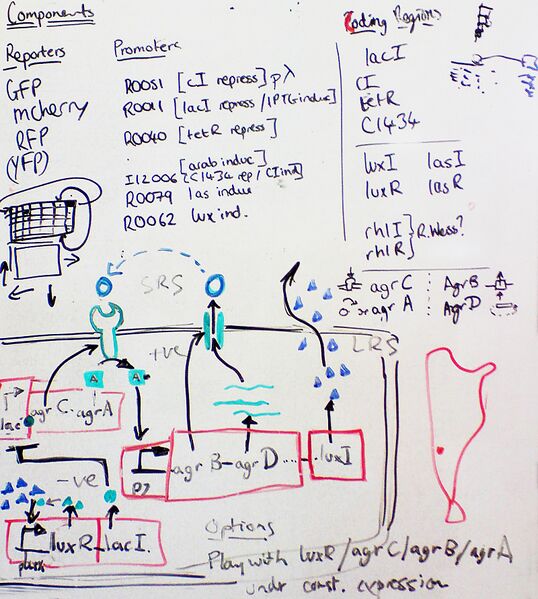 Components
Reporters
GFP
mcherry
RFP
(YFP)
Promoters
R0051 [cI repress] pλ
R0011 [lacI repress/IPTG induc]
R0040 [tetR repress]
[arab induc]
I12006 [C1434 rep/CI ind]
R0079 las induc
R0062 lux ind.
Coding Regions
lacI
CI
tetR
C1434
luxI lasI
luxR lasR
rhlI } R.Weiss?
rhlR
agrC : AgrB
agrA : AgrD
SRS
LRS
+ve
A
A
agrC-agrA
lac
P2
agrB-agrD....
luxI
-ve
luxR-lacI.
plux
Options
Play with luxR/agrC/agrB/agrA
undr const. expression